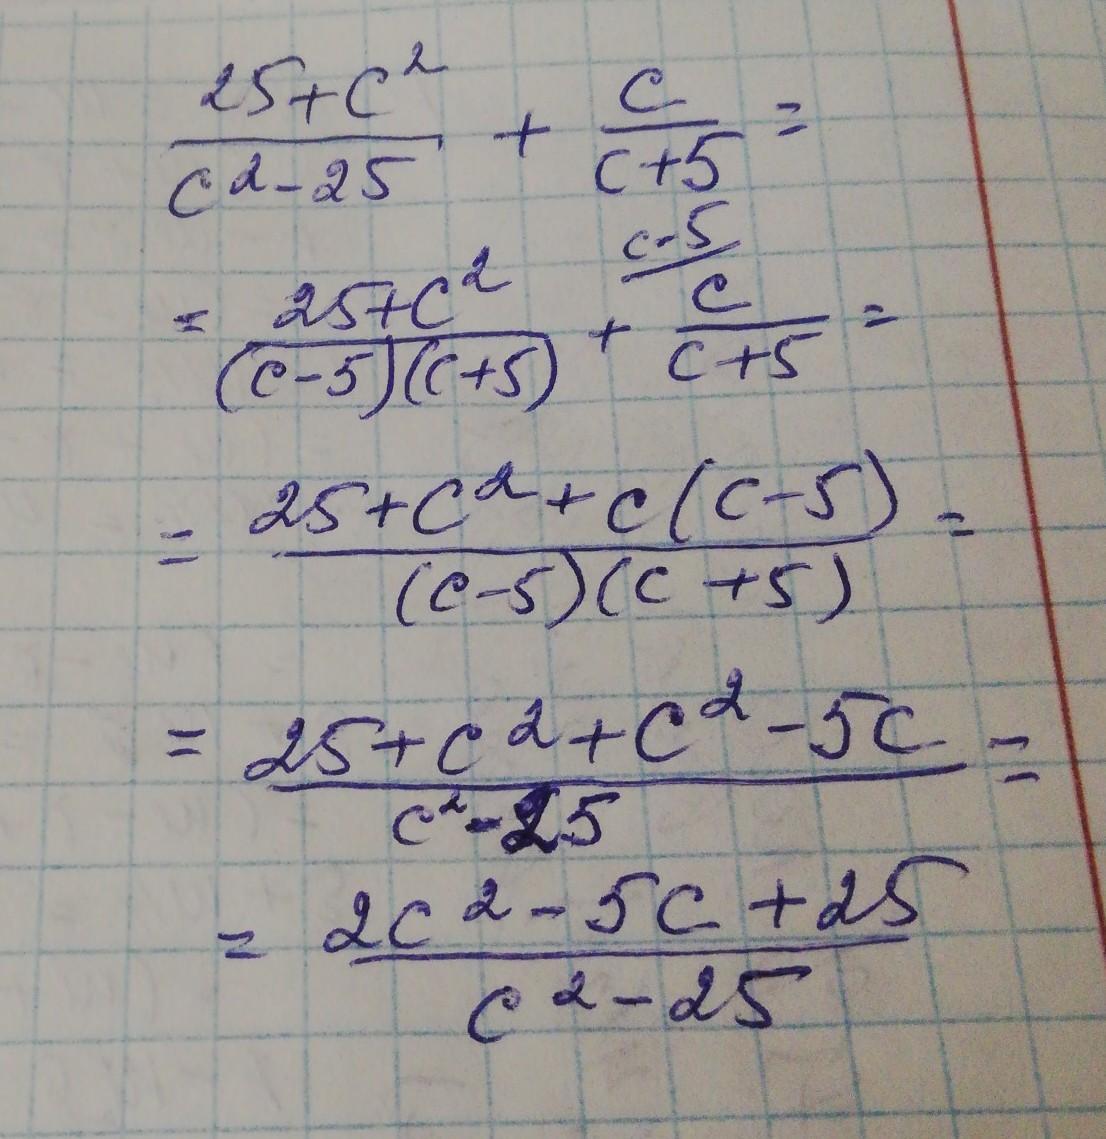 (25+c²)/(c²-25) + c/(c+5) =
= (25+c²)/((c-5)(c+5)) + c-5/ c/(c+5) =
= (25+c²+c(c-5))/((c-5)(c+5)) =
= (25+c²+c²-5c)/(c²-25) =
= (2c²-5c+25)/(c²-25)